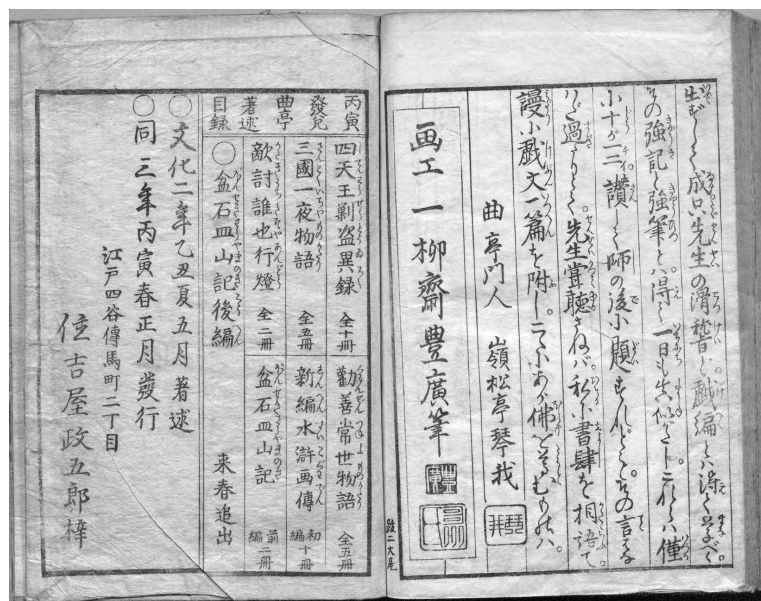 先生の滑稽と戯編とハ得て
その強記と強筆とハ得て一日も真似がたし。これハ僅
小十が一二讃して師の後小題すれども。その言
過たりとて。先生嘗聴さねバ。私小書肆を相語て
謾小戯文一篇を附して佛を尊むものハ。
曲亭門人 嶺松亭琴我
画工一柳齋豊廣筆
跋二大尾
丙寅發兌曲亭著述目録
四天王剿盗異録 全十冊
勧善常世物語 全五冊
三國一夜物語 全五冊
新編水滸画傳 初編十冊
敵討誰也行燈 全二冊
盆石皿山記 前編二冊
○盆石皿山記後編 来春追出
○文化二年乙丑夏五月著述
○同三年丙寅春正月發行
江戸四谷傳馬町二丁目
住吉屋政五郎梓